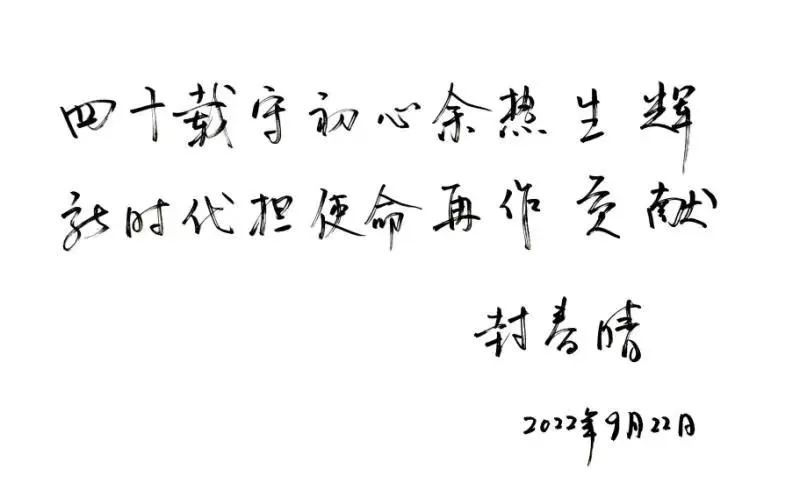 四十载守初心余热生辉
新时代担使命再作贡献
封春晴
2022年9月22日